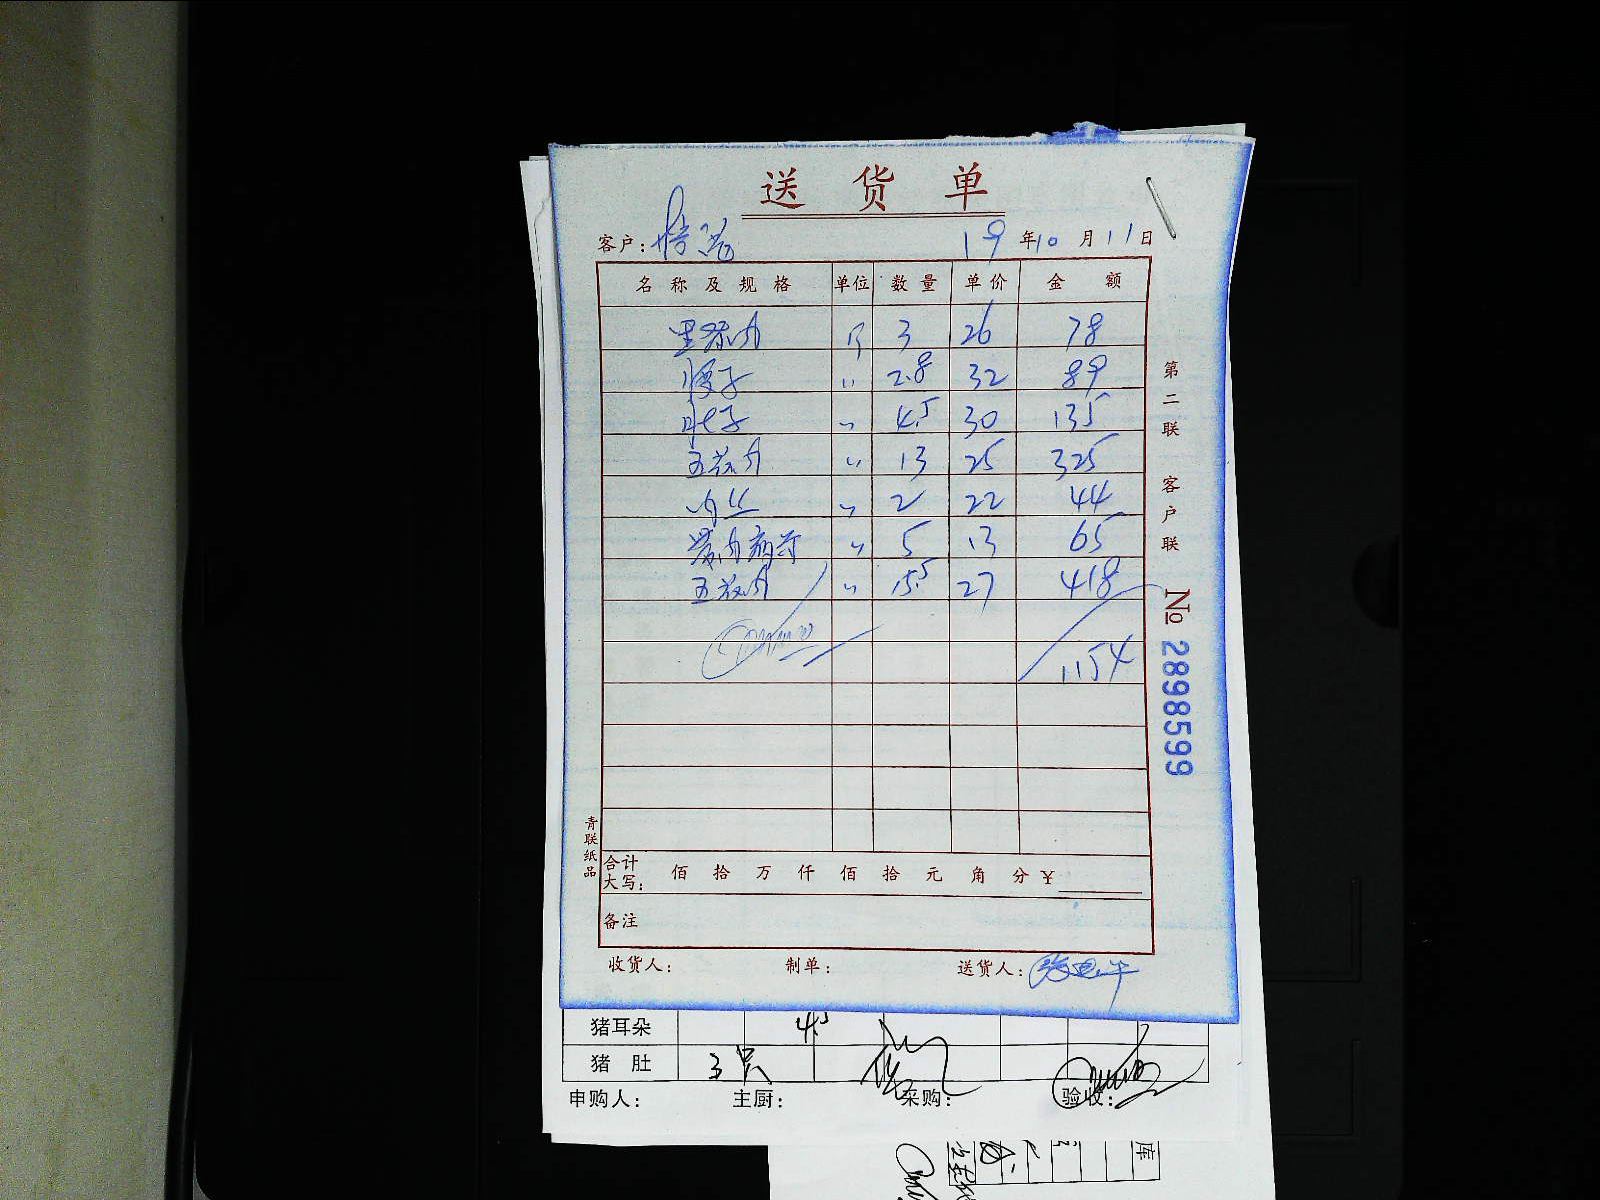 送货单
客户: 19年10月11日
名称及规格 单位 数量 单价 金额
里脊肉 斤 3 26 78
腰子 〃 2.8 32 89
肚子 〃 4.5 30 135
五花肉 〃 13 25 325
肉丝 〃 2 22 44
〃 5 13 65
五花肉 〃 15.5 27 418
1154
合计大写: 佰 拾 万 仟 佰 拾 元 角 分 ¥
备注
收货人: 制单: 送货人:
第二联 客户联
№ 2898599
青联纸品
猪耳朵 4.5
猪肚 3只
申购人: 主厨: 采购: 验收:
库